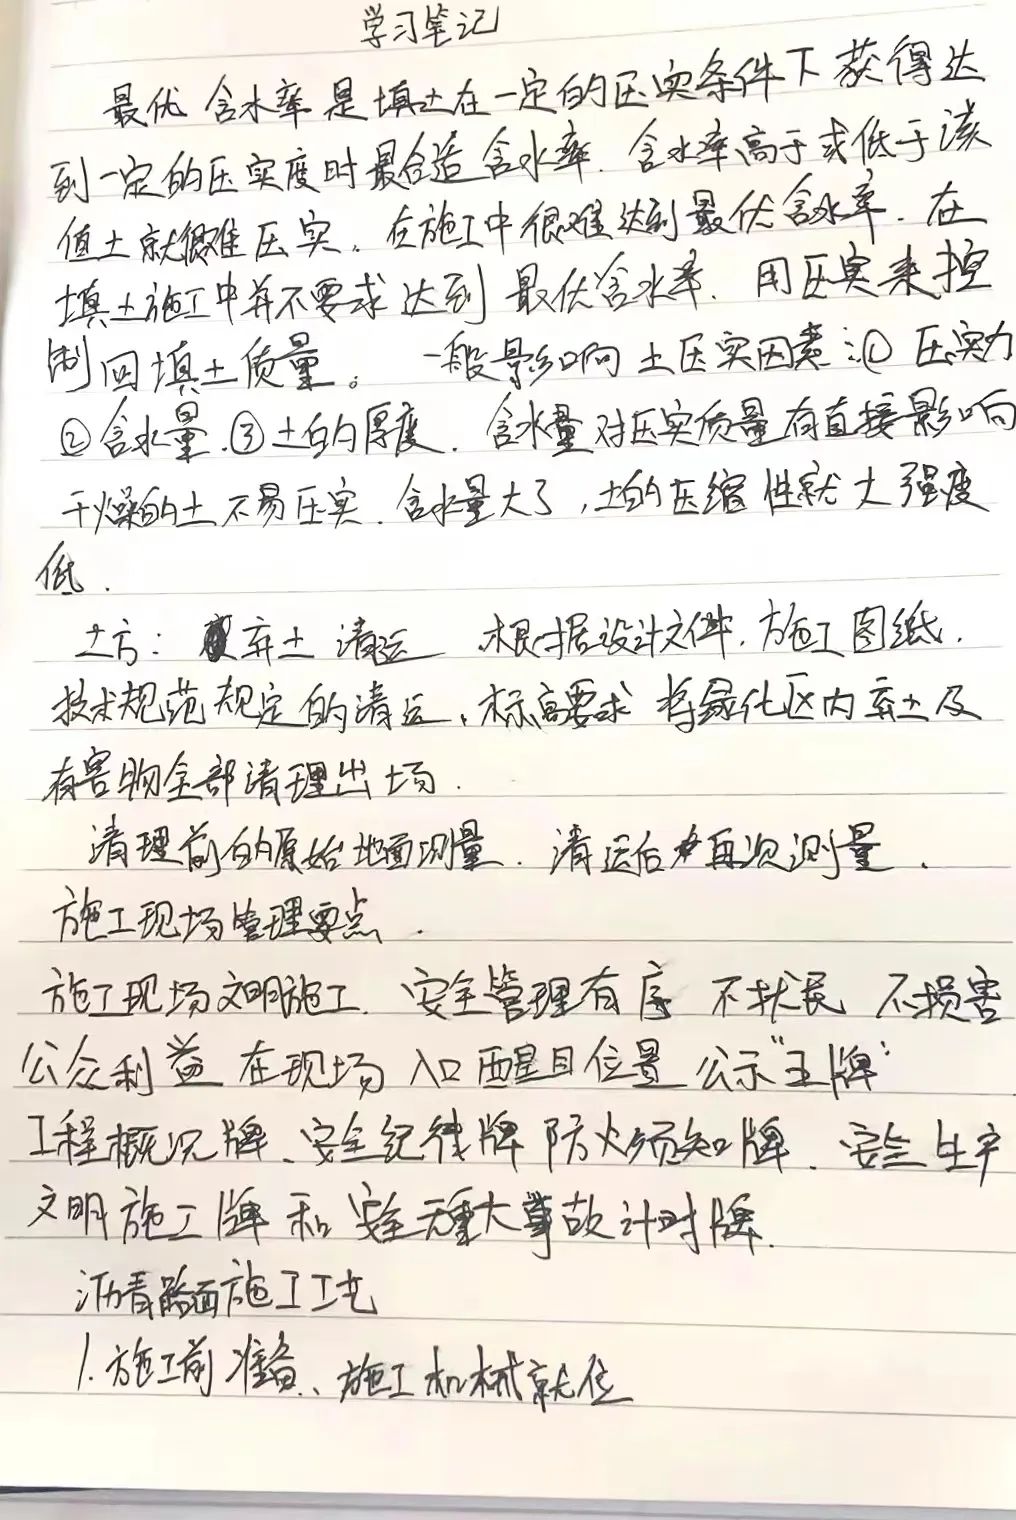 学习笔记
最优含水率是填土在一定的压实条件下获得达
到一定的压实度时最合适含水率.含水率高于或低于该
值土就很难压实。在施工中很难达到最优含水率.在
填土施工中并不要求达到最优含水率.用压实来控
制回填土质量。一般影响土压实因素:①压实力
②含水量.③土的厚度.含水量对压实质量有直接影响
干燥的土不易压实.含水量大了,土的压缩性就大强度
低.
土方:弃土清运 根据设计文件.施工图纸.
技术规范规定的清运、标高要求 将绿化区内弃土及
有害物全部清理出场.
清理前的原始地面测量.清运后再次测量.
施工现场管理要点.
施工现场文明施工.安全管理有序 不扰民 不损害
公众利益 在现场入口醒目位置 公示"王牌"
工程概况牌、安全纪律牌 防火须知牌.安全生产
文明施工牌和安全无重大事故计时牌.
沥青路面施工工艺
1.施工前准备、施工机械就位